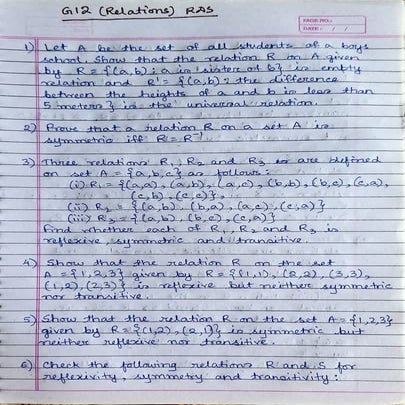 G12 (Relations) RDS
PAGE NO.:
DATE: / /
1) Let A be the set of all students of a boys
school. Show that the relation R on A given
by R = {(a,b): a is sister of b} is empty
relation and R' = {(a,b): the difference
between the heights of a and b is less than
5 meters} is the universal relation.
2) Prove that a relation R on a set A is
symmetric iff R = R⁻¹
3) Three relations R₁, R₂ and R₃ are defined
on set A = {a,b,c} as follows:
(i) R₁ = {(a,a), (a,b), (a,c), (b,b), (b,c), (c,a),
(c,b), (c,c)},
(ii) R₂ = {(a,b), (b,a), (a,c), (c,a)}
(iii) R₃ = {(a,b), (b,c), (c,a)}
Find whether each of R₁, R₂ and R₃ is
reflexive, symmetric and transitive.
4) Show that the relation R on the set
A = {1,2,3} given by R = {(1,1), (2,2), (3,3),
(1,2), (2,3)} is reflexive but neither symmetric
nor transitive.
5) Show that the relation R on the set A = {1,2,3}
given by R = {(1,2), (2,1)} is symmetric but
neither reflexive nor transitive.
6) Check the following relations R and S for
reflexivity, symmetry and transitivity: